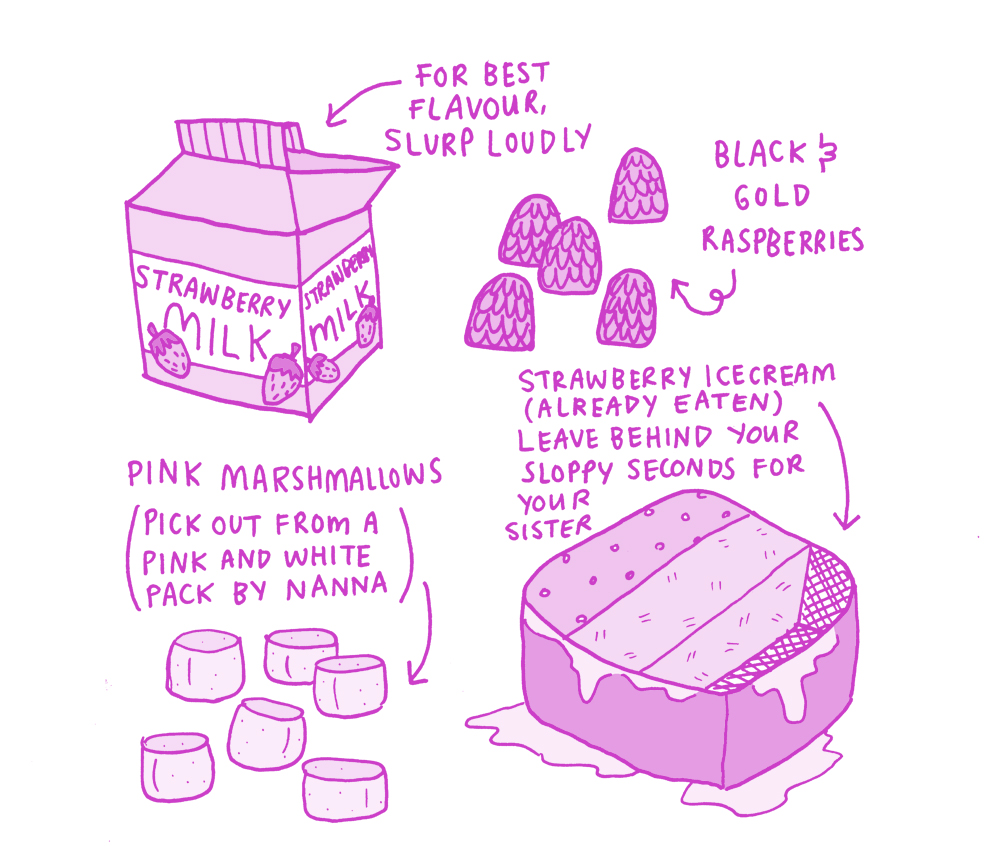 FOR BEST
FLAVOUR,
SLURP LOUDLY
STRAWBERRY
MILK
STRAWBERRY
MILK
BLACK &
GOLD
RASPBERRIES
STRAWBERRY ICECREAM
(ALREADY EATEN)
LEAVE BEHIND YOUR
SLOPPY SECONDS FOR
YOUR
SISTER
PINK MARSHMALLOWS
(PICK OUT FROM A
PINK AND WHITE
PACK BY NANNA)